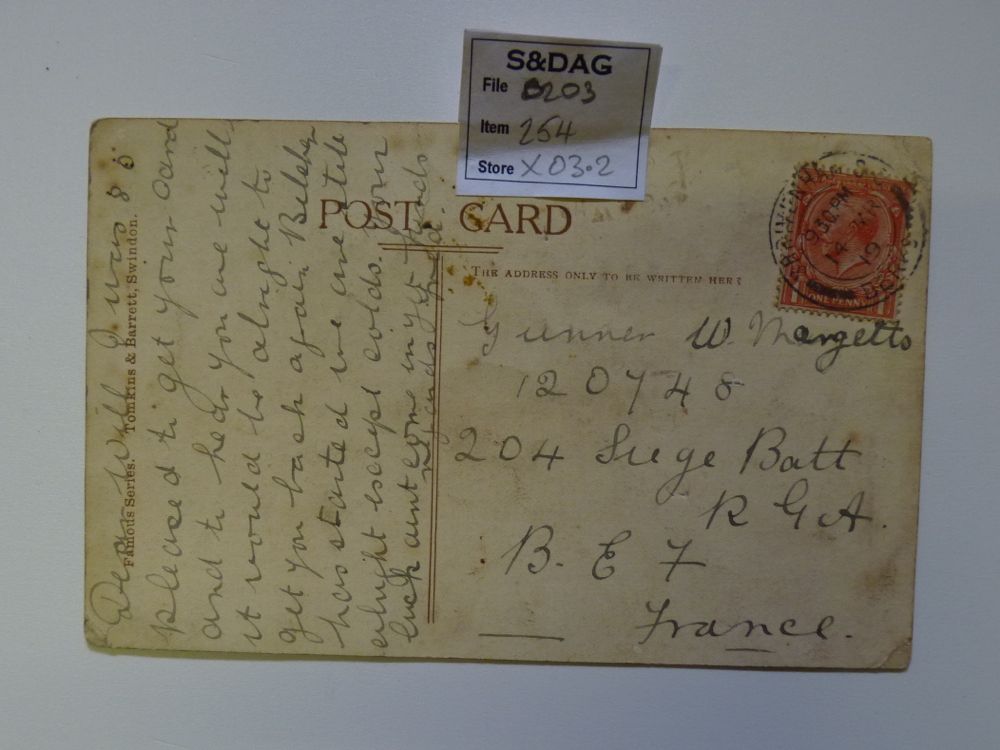 S&DAG
File B203
Item 254
Store X03.2
POST CARD
THE ADDRESS ONLY TO BE WRITTEN HERE
ONE PENNY
9 30 PM
19
Gunner W. Margetts
120748
204 Siege Batt
R G A.
B. E F
France.
Famous Series. Tomkins & Barrett, Swindon.
Dear Will I was so
pleased to get your card
and to hear you are well
it would be alright to
get you back again
has started we are
alright except colds.
luck aunt come in yet